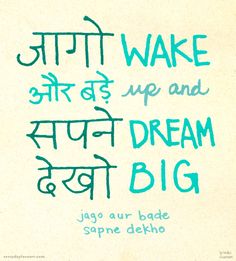 जागो WAKE
और बड़े up and
सपने DREAM
देखो BIG
jago aur bade
sapne dekho